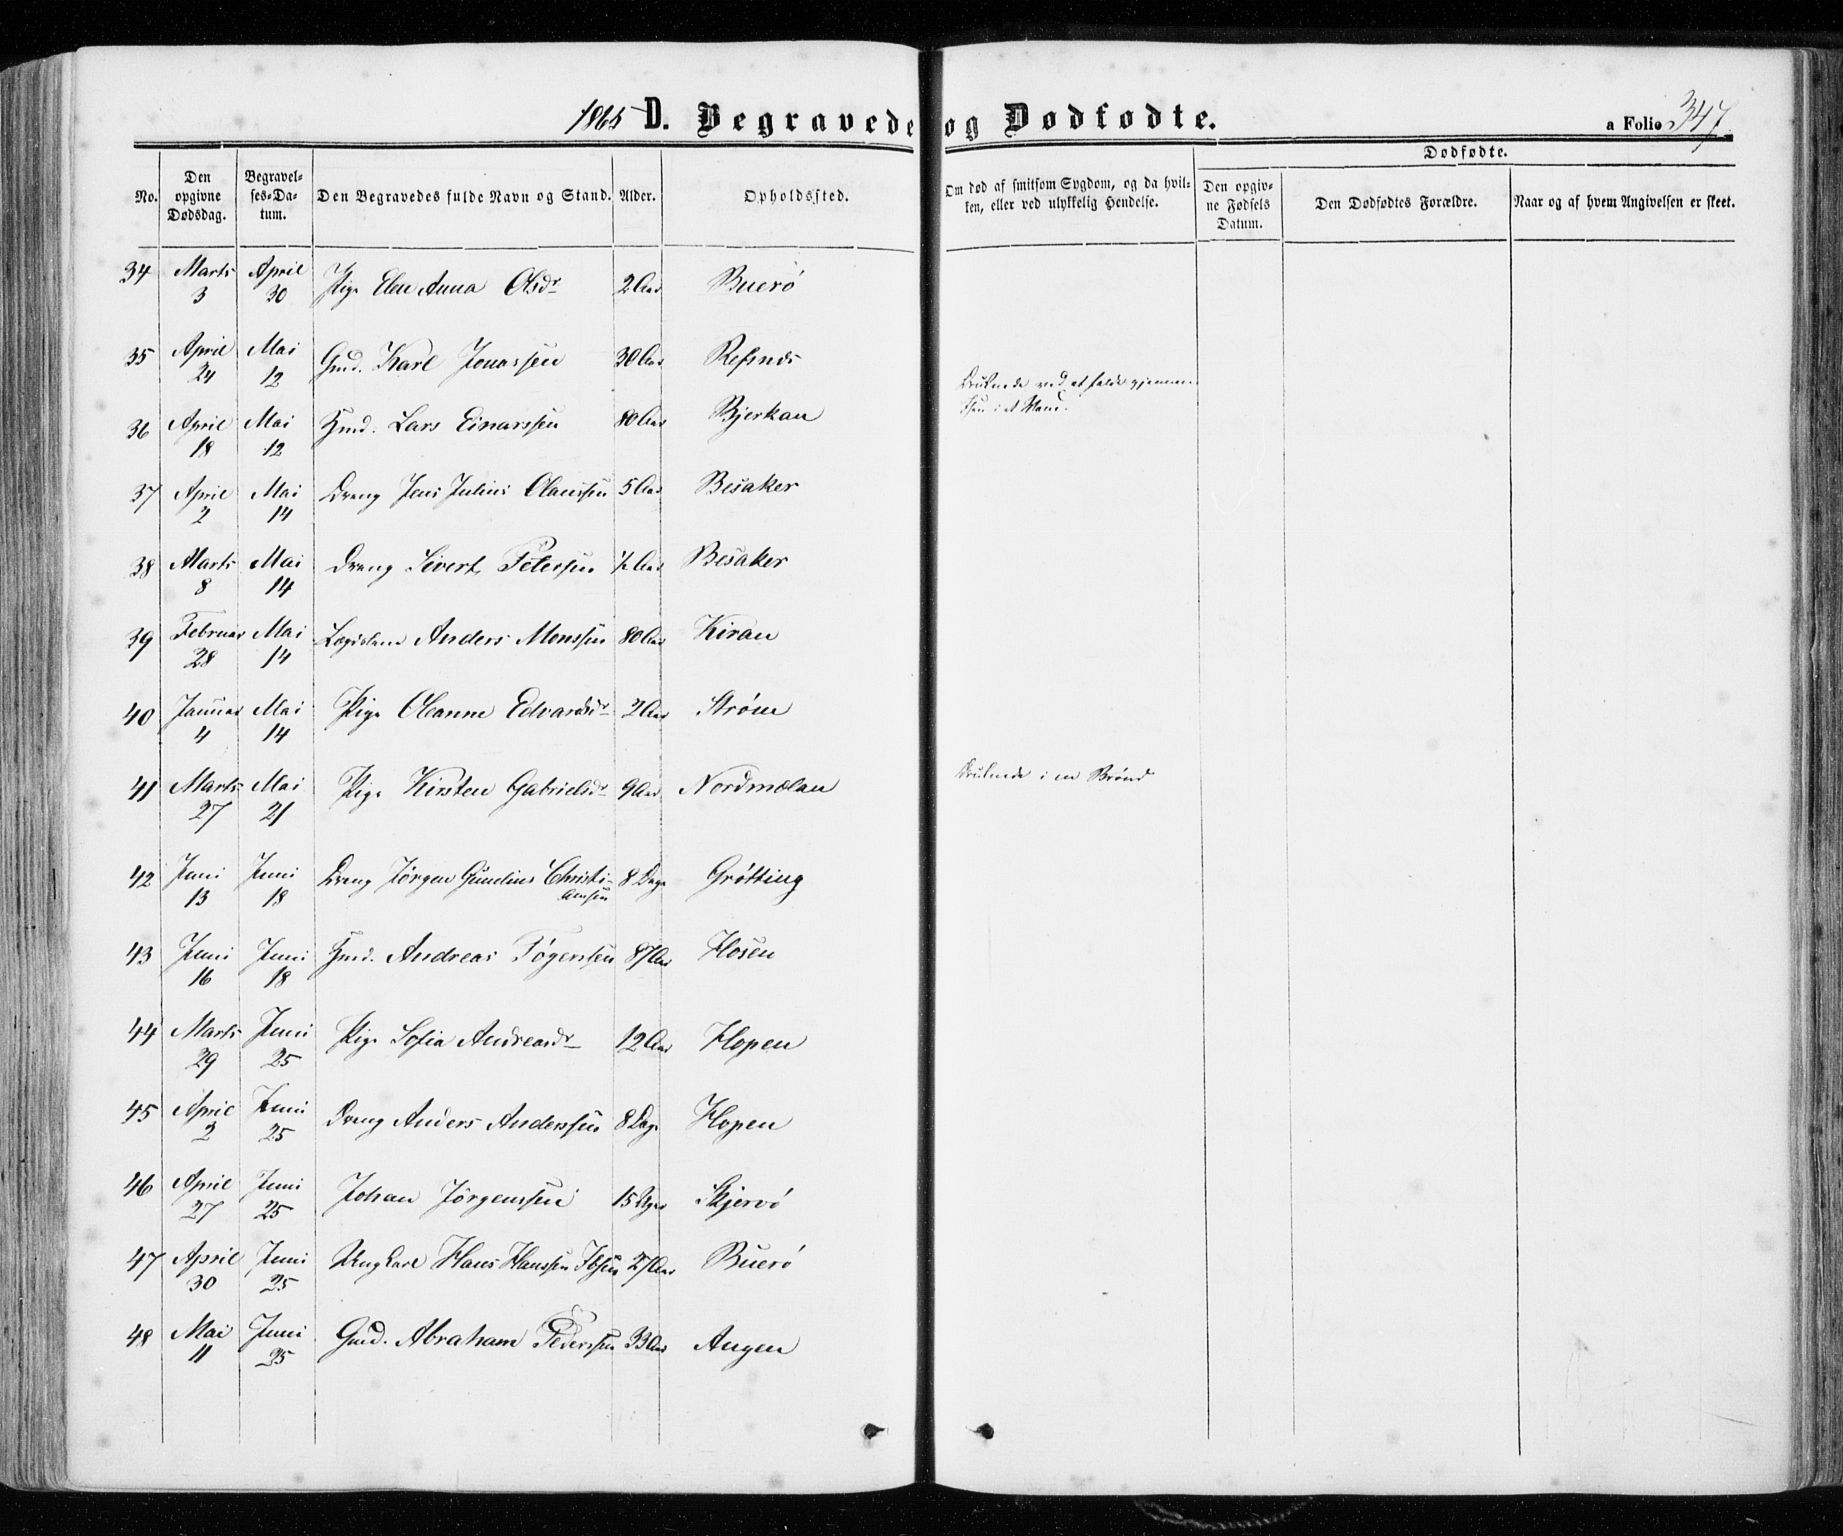 1865 D. Begravede og Dødfødte. a Folio 347
Dødfødte.
No. Den opgivne Dødsdag. Begravelses-Datum. Den Begravedes fulde Navn og Stand. Alder. Opholdssted. Om død af smitsom Sygdom, og da hvilken, eller ved ulykkelig Hendelse. Den opgivne Fødsels Datum. Den Dødfødtes Forældre. Naar og af hvem Angivelsen er skeet.
34 Marts 3 April 30 Pige Elen Anna Olsdr 2 Aar Buerø
35 April 24 Mai 12 Gmd. Karl Jonassen 30 Aar Refsnæs Druknede ved at falde gjennem Isen i et Vand.
36 April 18 Mai 12 Kmd. Lars Einarssen 80 Aar Bjerkan
37 April 2 Mai 14 Dreng Jens Julius Olaussen 5 Aar Besaker
38 Marts 8 Mai 14 Dreng Sivert Petersen ½ Aar Besaker
39 Februar 28 Mai 14 Lægdslem Anders Monssen 80 Aar Kiran
40 Januar 4 Mai 14 Pige Oleanne Edvardsdr 2 Aar Strøm
41 Marts 27 Mai 21 Pige Kirsten Gabrielsdr 9 Aar Nordmælan Druknede i en Brønd
42 Juni 13 Juni 18 Dreng Jørgen Gunelius Christiansen 8 Dage Grøtting
43 Juni 16 Juni 18 Kmd. Andreas Tøgerssen 87 Aar Hosen
44 Marts 29 Juni 25 Pige Sofia Andreasdr 12 Aar Hopen
45 April 2 Juni 25 Dreng Anders Anderssen 8 Dage Hopen
46 April 27 Juni 25 Johan Jørgenssen 15 Uger Skjervø
47 April 30 Juni 25 Ungkarl Hans Hanssen 27 Aar Buerø
48 Mai 11 Juni 25 Gmd. Abraham Pederssen 33 Aar Angen